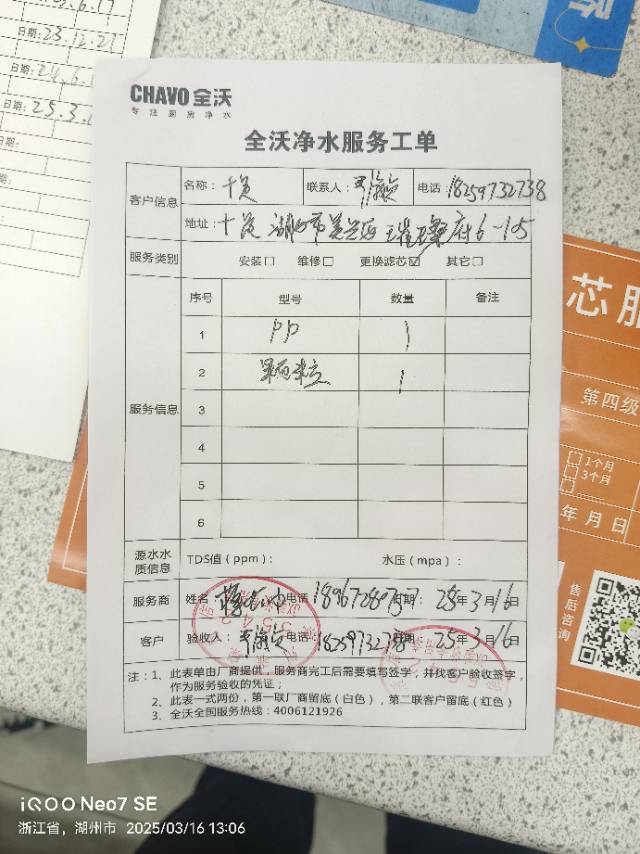 日期: 23.12.27
日期:
日期: 25.3.
CHAVO 全沃
专注厨房净水
全沃净水服务工单
客户信息
名称:
联系人:
电话: 18259732738
地址: 湖州市吴兴区璀璨府6-105
服务类别
安装□ 维修□ 更换滤芯☑ 其它□
服务信息
序号 型号 数量 备注
1 PP 1
2 果石米立 1
3
4
5
6
源水水质信息
TDS值(ppm): 水压(mpa):
服务商
姓名 电话 日期: 25年3月16日
客户
验收人: 电话: 18259732738 日期: 25年3月16日
注: 1、此表单由厂商提供,服务商完工后需要填写签字,并找客户验收签字,
作为服务验收的凭证;
2、此表一式两份,第一联厂商留底(白色),第二联客户留底(红色)
3、全沃全国服务热线: 4006121926
芯服
第四级
1个月
3个月
年 月 日
售后咨询
iQOO Neo7 SE
浙江省,湖州市 2025/03/16 13:06